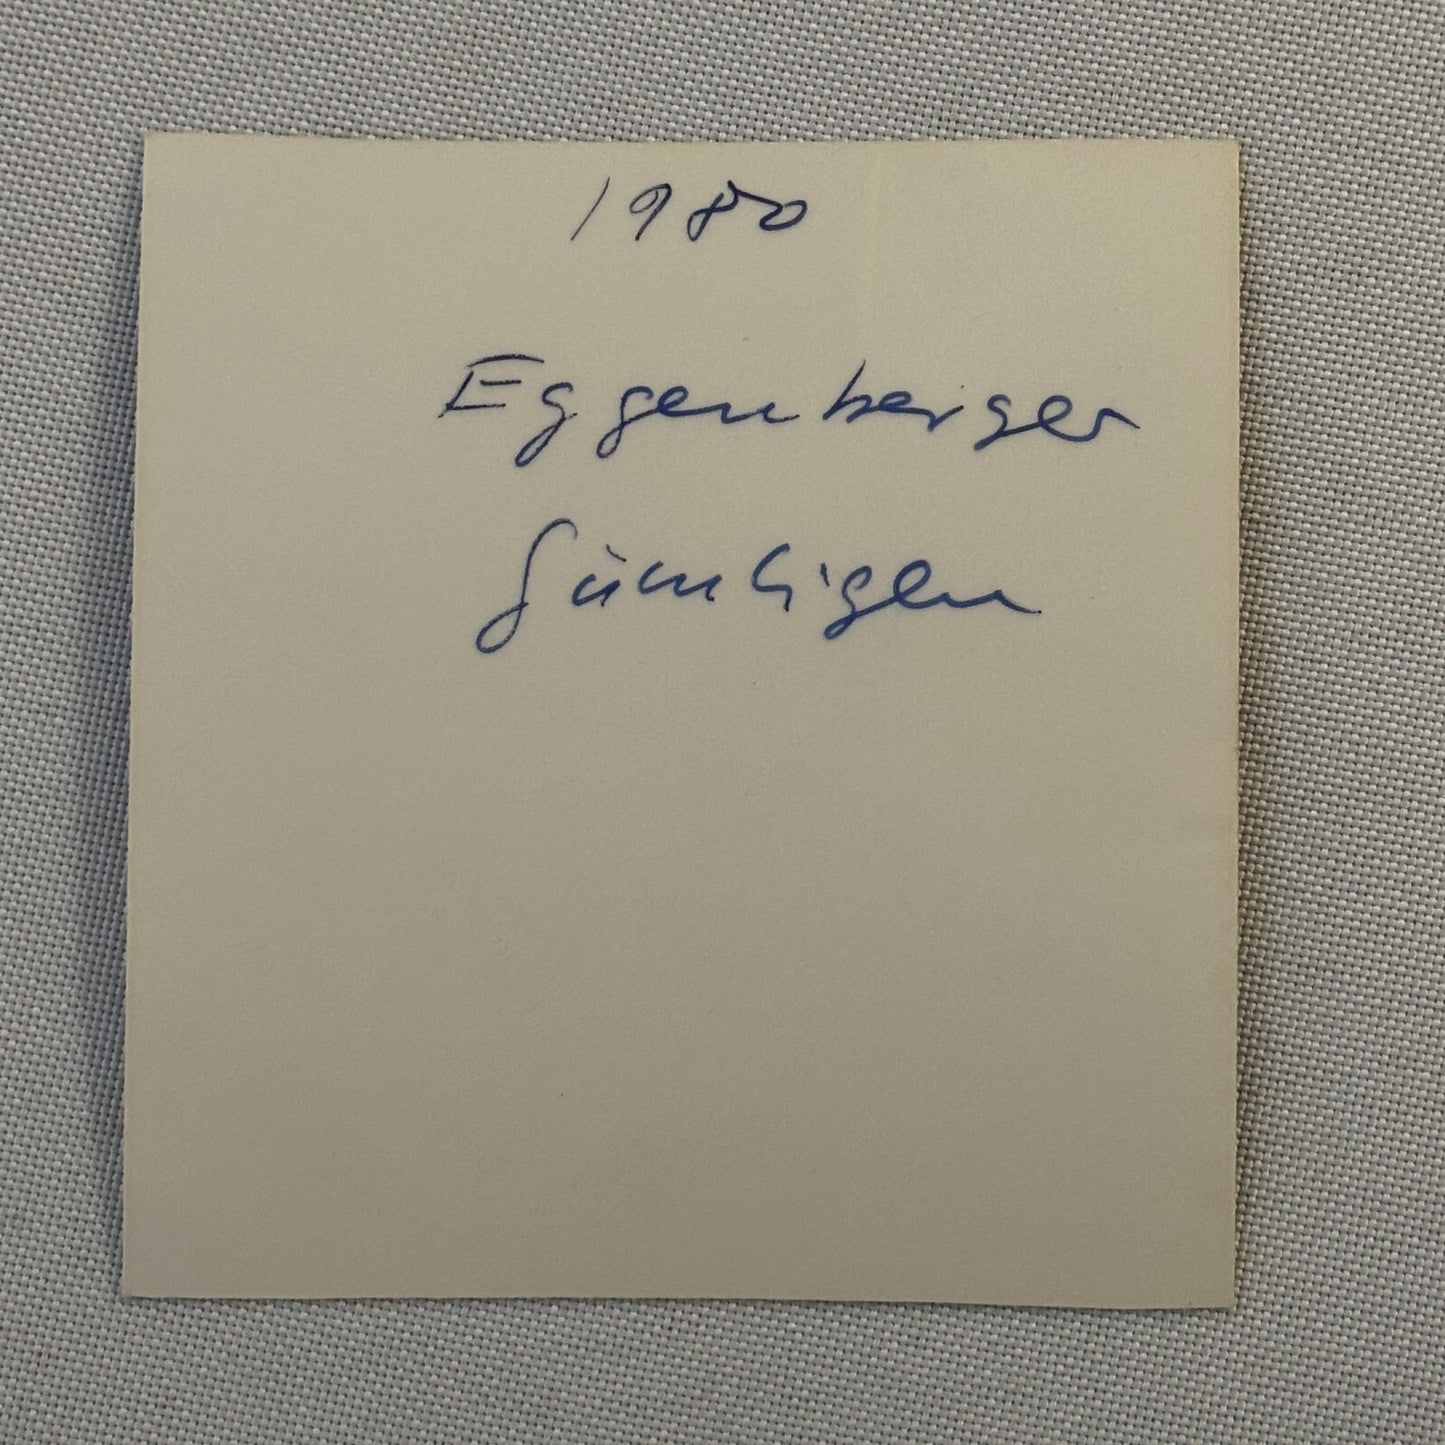 1980
Eggenberger
Gümligen